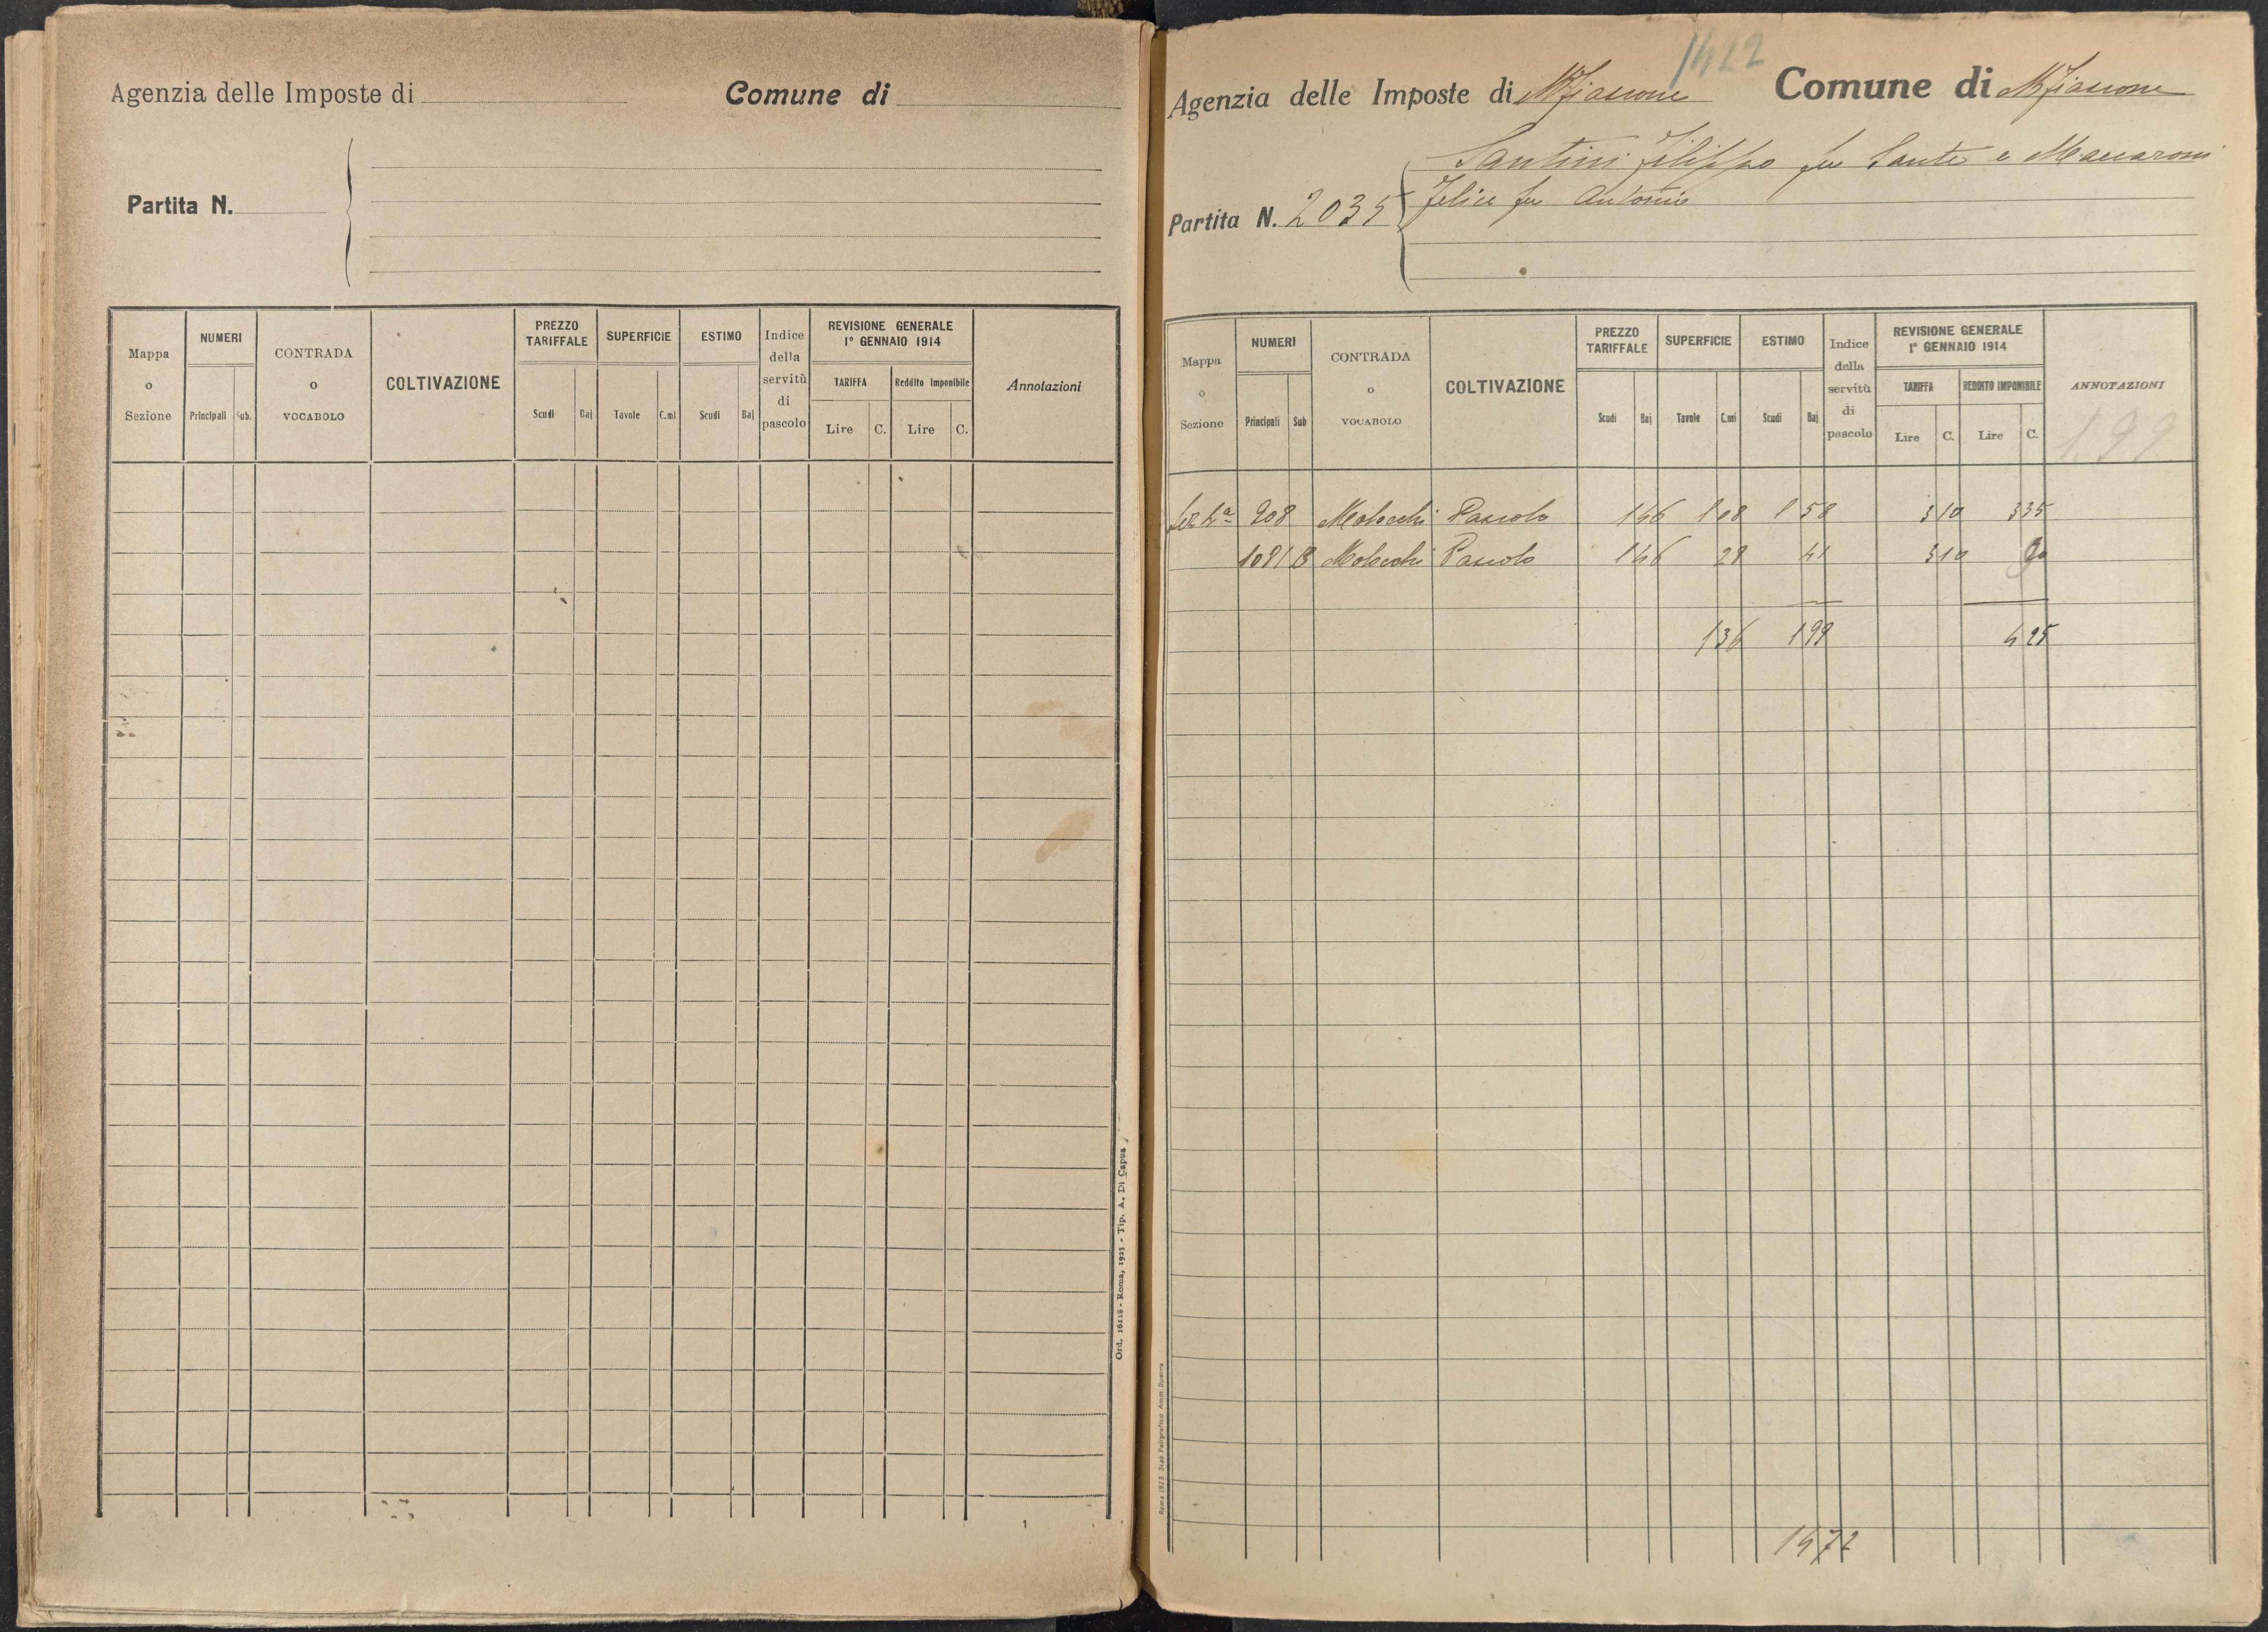 Agenzia delle Imposte di Comune di
Partita N.
Mappa o Sezione NUMERI CONTRADA o VOCABOLO COLTIVAZIONE PREZZO TARIFFALE SUPERFICIE ESTIMO Indice della servitù di pascolo REVISIONE GENERALE 1° GENNAIO 1914 Annotazioni
TARIFFA Reddito Imponibile
Principali Sub. Scudi Baj Tavole C.mi Scudi Baj Lire C. Lire C.
Ord. 16118 - Roma, 1923 - Tip. A. Di Capua
1
1422
Agenzia delle Imposte di Mfiascone Comune di Mfiascone
Santini Filippo fu Sante e Maccaroni
Felice fu Antonio
Partita N. 2035
Mappa o Sezione NUMERI CONTRADA o VOCABOLO COLTIVAZIONE PREZZO TARIFFALE SUPERFICIE ESTIMO Indice della servitù di pascolo REVISIONE GENERALE 1° GENNAIO 1914 ANNOTAZIONI
TARIFFA REDDITO IMPONIBILE
Principali Sub Scudi Baj Tavole C.mi Scudi Baj Lire C. Lire C.
199
Sez 4ª 908 Molocchi Pascolo 1 46 1 08 1 58 3 10 3 35
1081 B Molocchi Pascolo 1 46 28 41 3 10 90
1 36 1 99 4 25
1472
Roma 1923 Stab. Poligrafico Amm. Guerra